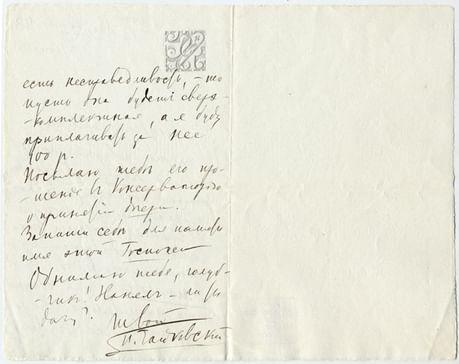 есть несправедливость, – то
пусть она будетъ сверх-
-комплектная, а я буду
приплачивать за нее
100 р.
Посылаю тебѣ его про-
шение въ Консерваторию
о принятіи
Запиши себѣ для памяти
имя этой Госпожи
Обнимаю тебя, голуб-
чикъ!
твой
П. Чайковский